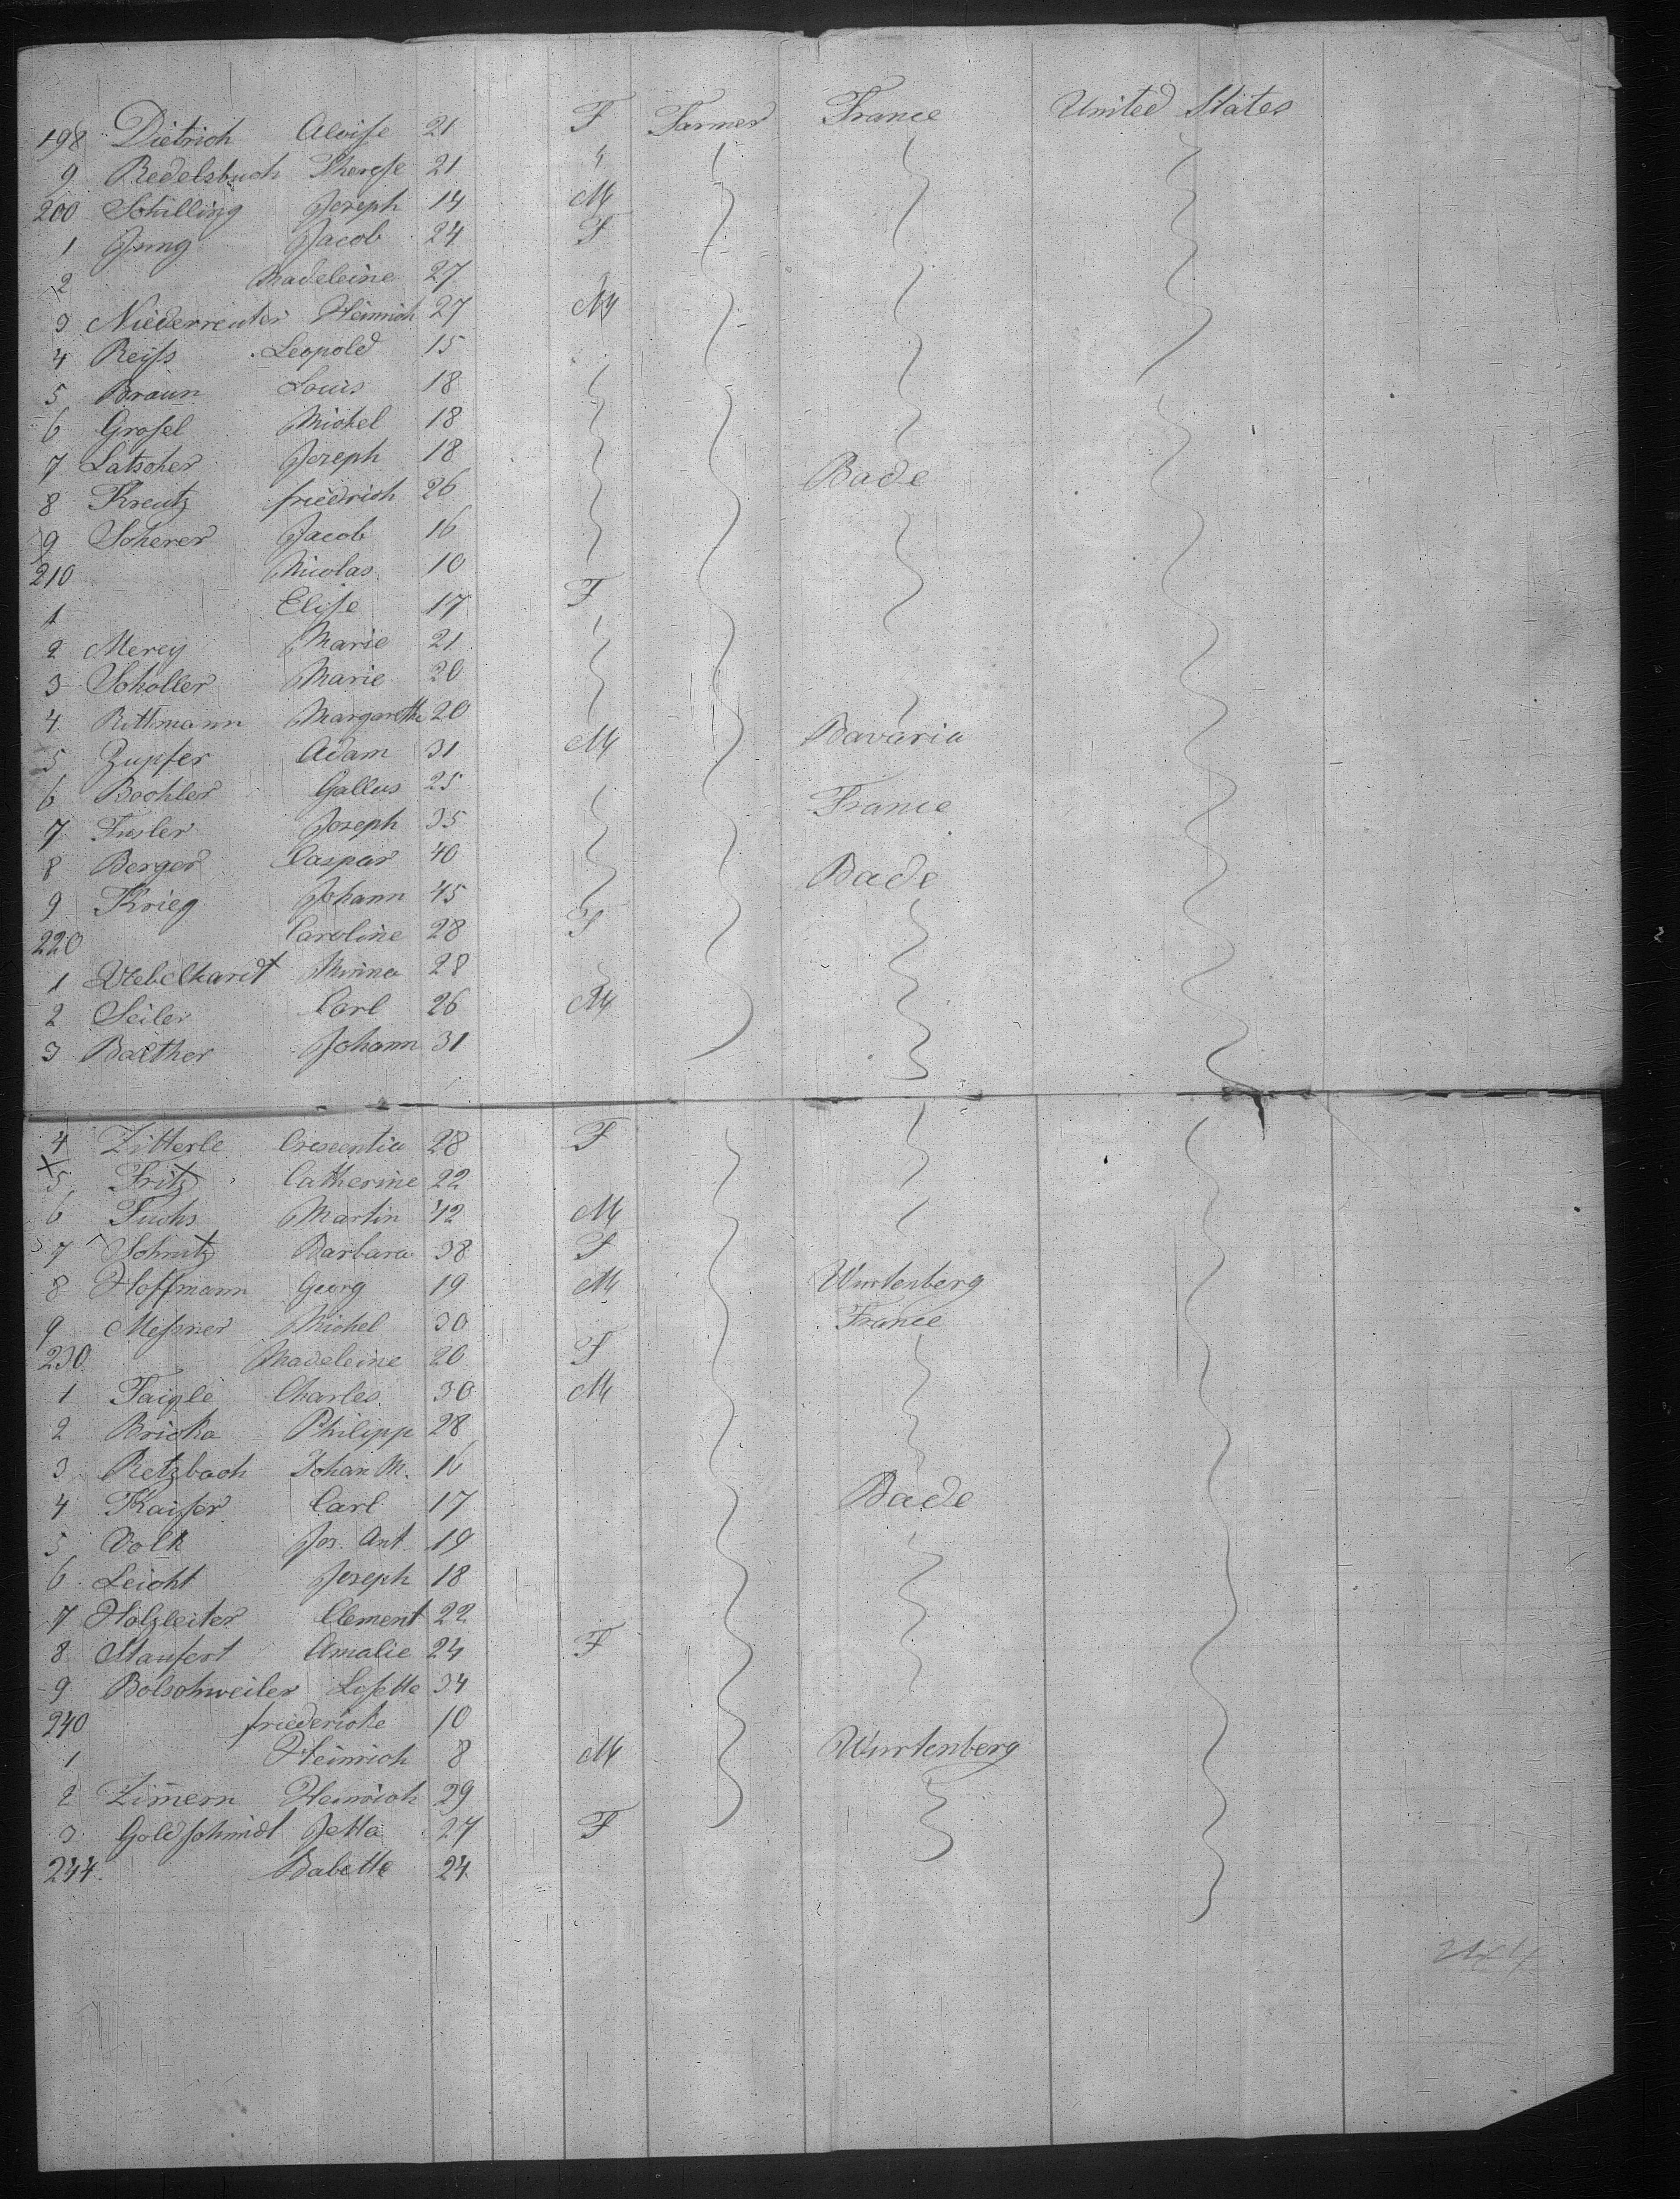 198 Dietrich Aloise 21 F Farmer France United States
9 Redelsbuch Therese 21 "
200 Schilling Joseph 14 M
1 Jung Jacob 24 F
2 Madeleine 27
3 Niederreuter Heinrich 27 M
4 Reiss Leopold 15
5 Braun Louis 18
6 Grosel Michel 18
7 Latscher Joseph 18 Bade
8 Kreutz friedrich 26
9 Scherer Jacob 16
210 Nicolas 10
1 Elise 17 F
2 Mercy Marie 21
3 Scholler Marie 20
4 Rittmann Margarethe 20
5 Zupfer Adam 31 M Bavaria
6 Bochler Gallus 25 France
7 Fusler Joseph 35
8 Berger Caspar 40 Bade
9 Krieg Johann 45
220 Caroline 28 F
1 Uebelhardt Minna 28
2 Seiler Carl 26 M
3 Balther Johann 31
4 Zitterle Crescentia 28 F
5 Fritz Catherine 22
6 Fuchs Martin 42 M
7 Schutz Barbara 38 F
8 Hoffmann Georg 19 M Wurtenberg
9 Messner Michel 30 France
230 Madeleine 20 F
1 Faigle Charles 30 M
2 Bricka Philipp 28
3 Retzbach Johan M. 16
4 Kaiser Carl 17 Bade
5 Volk Jos. Ant. 19
6 Leicht Joseph 18
7 Holzleiter Clement 22
8 Staufert Amalie 24 F
9 Bolschweiler Losette 34
240 friedericke 10
1 Heinrich 8 M Wurtenberg
2 Zimern Heinrich 29
3 Goldschmidt Jetta 27 F
244 Babette 24
244